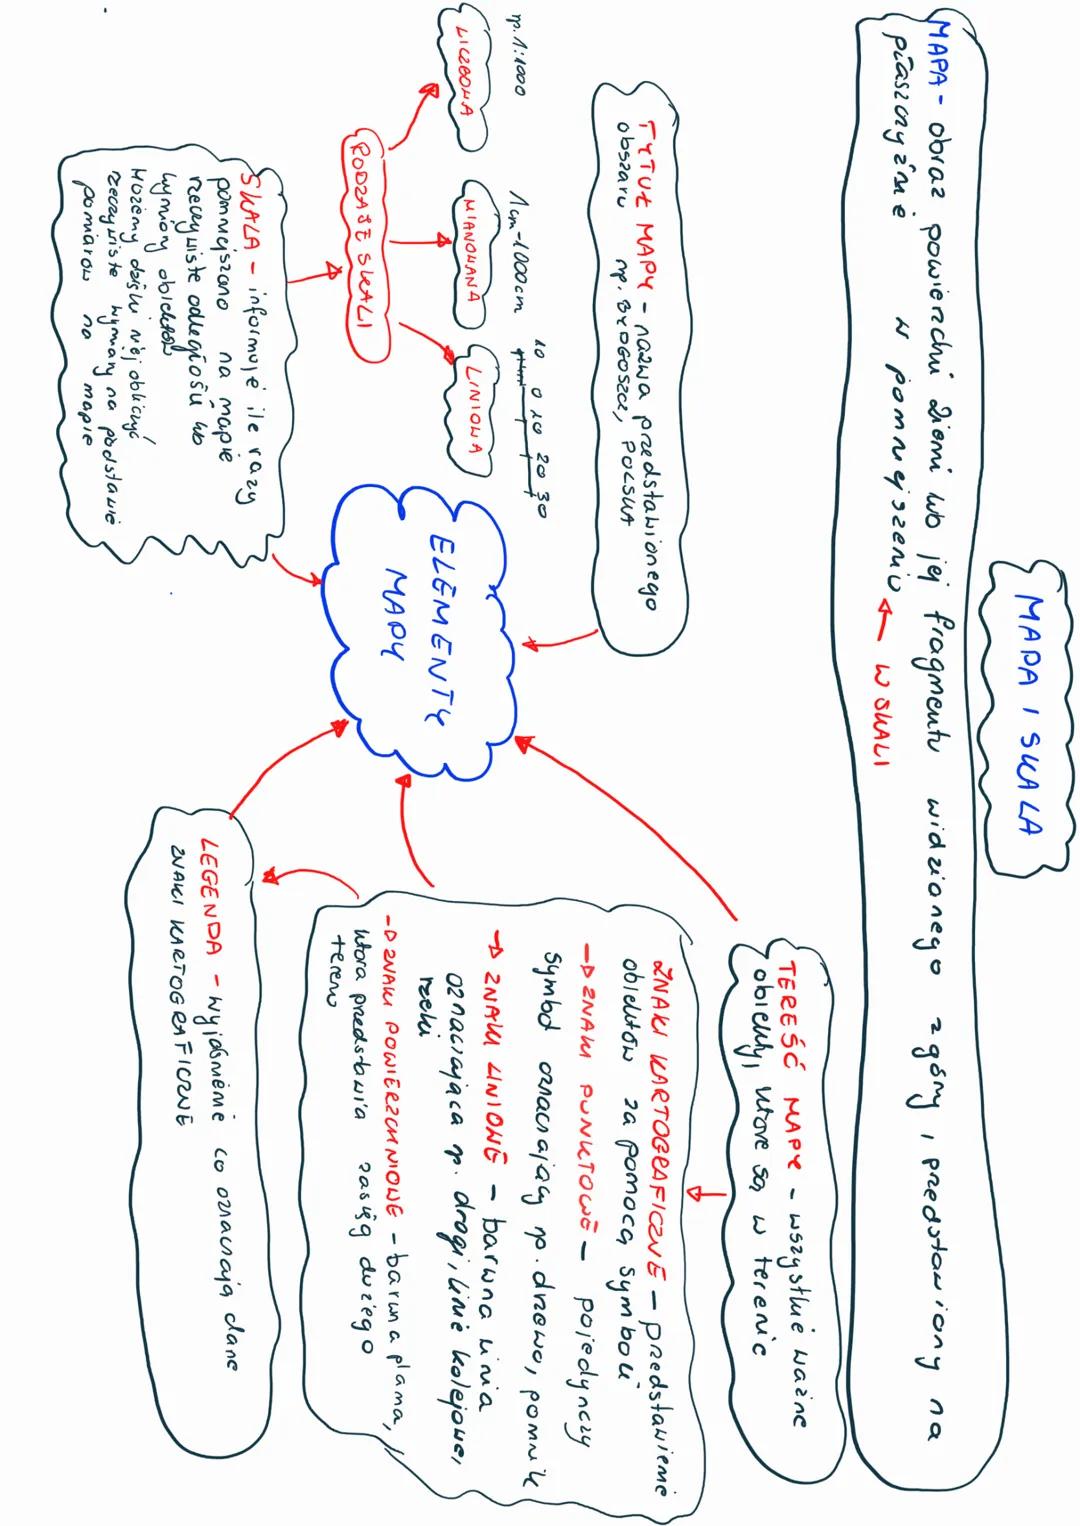 MAPA I SKALA
MAPA - obraz powierzchni ziemi lub jej fragmentu widzianego z góry, przedstawiony na
płaszczyźnie w pomniejszeniu ← W SKALI
TYTUŁ MAPY - nazwa przedstawionego
obszaru np. BYDGOSZCZ, POLSKA
TEREŚĆ MAPY - wszystkie ważne
obiekty, które są w terenie
ZNAKI KARTOGRAFICZNE - przedstawienie
obiektów za pomocą symboli
→ ZNAKI PUNKTOWE - pojedynczy
symbol oznaczający np. drzewo, pomnik
→ ZNAKI LINIOWE - barwna linia
oznaczająca np. drogi, linie kolejowe,
rzeki
→ ZNAKI POWIERZCHNIOWE - barwna plama,
która przedstawia zasięg dużego
terenu
LEGENDA - wyjaśnienie co oznaczają dane
ZNAKI KARTOGRAFICZNE
ELEMENTY
MAPY
np. 1:1000
1cm-1000cm
10 0 10 20 30
LICZBOWA
MIANOWANA
LINIOWA
RODZAJE SKALI
SKALA - informuje ile razy
pomniejszono na mapie
rzeczywiste odległości lub
wymiary obiektów
Możemy dzięki niej obliczyć
rzeczywiste wymiary na podstawie
pomiarów na mapie